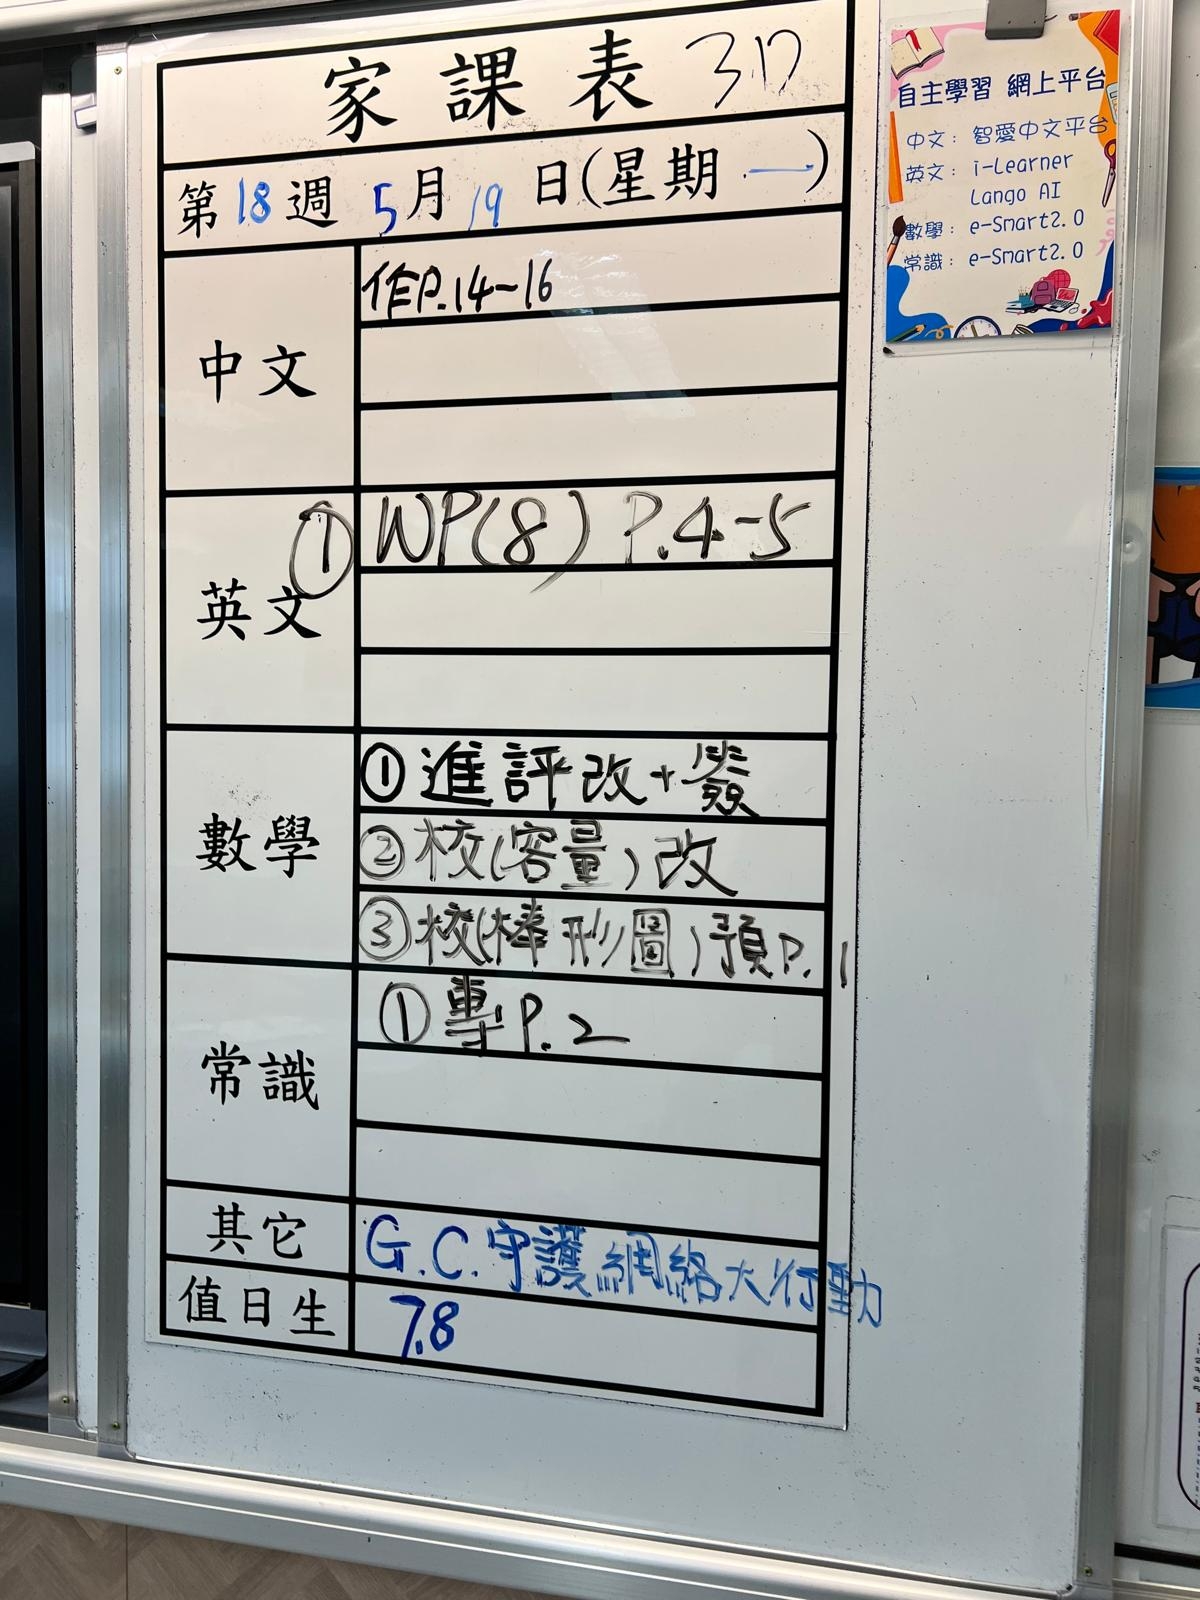 家課表 3D
第18週 5月19日(星期一)
中文
作P.14~16
英文
① WP(8) P.4-5
數學
① 進評改+簽
② 校(容量)改
③ 校(棒形圖)預P.1
常識
① 專P.2
其它
G.C.守護網絡大行動
值日生
7.8
自主學習 網上平台
中文：智愛中文平台
英文：i-Learner
Lango AI
數學：e-Smart2.0
常識：e-Smart2.0